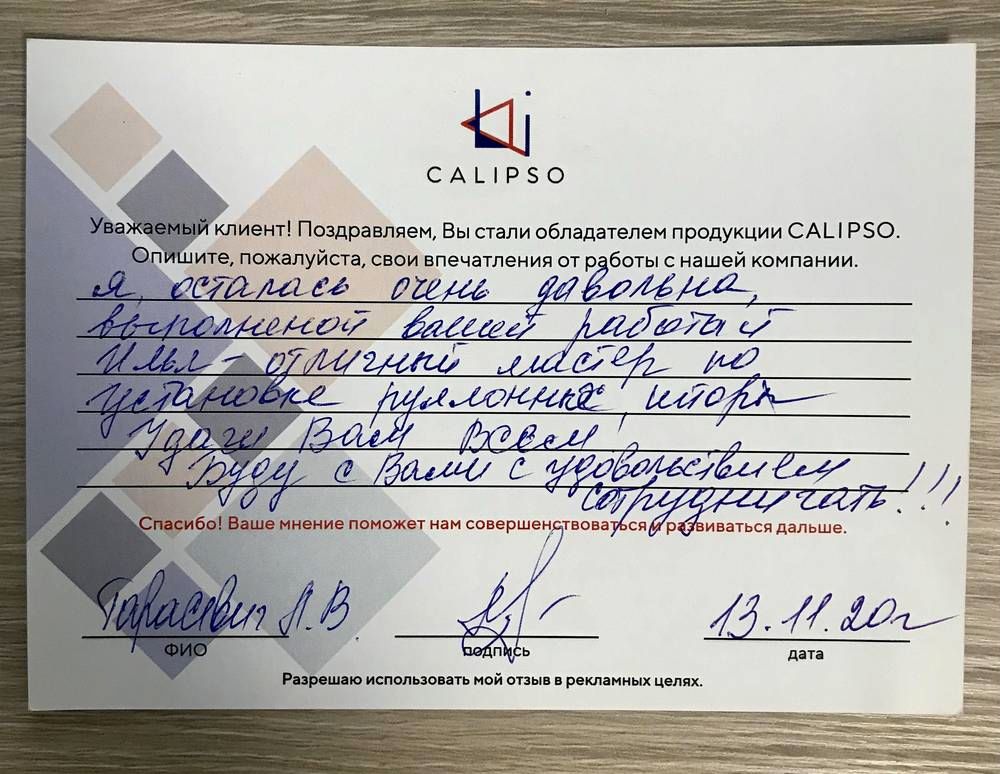 CALIPSO
Уважаемый клиент! Поздравляем, Вы стали обладателем продукции CALIPSO.
Опишите, пожалуйста, свои впечатления от работы с нашей компании.
Я, осталась очень давольна,
выполненой вашей работай
Илья - отличный мастер по
установке руллонных штор
Удачи Вам Всем
Буду с Вами с удовольствием
сотрудничать!!!
Спасибо! Ваше мнение поможет нам совершенствоваться и развиваться дальше.
Тарасевич Л.В. 13.11.20г
ФИО подпись дата
Разрешаю использовать мой отзыв в рекламных целях.